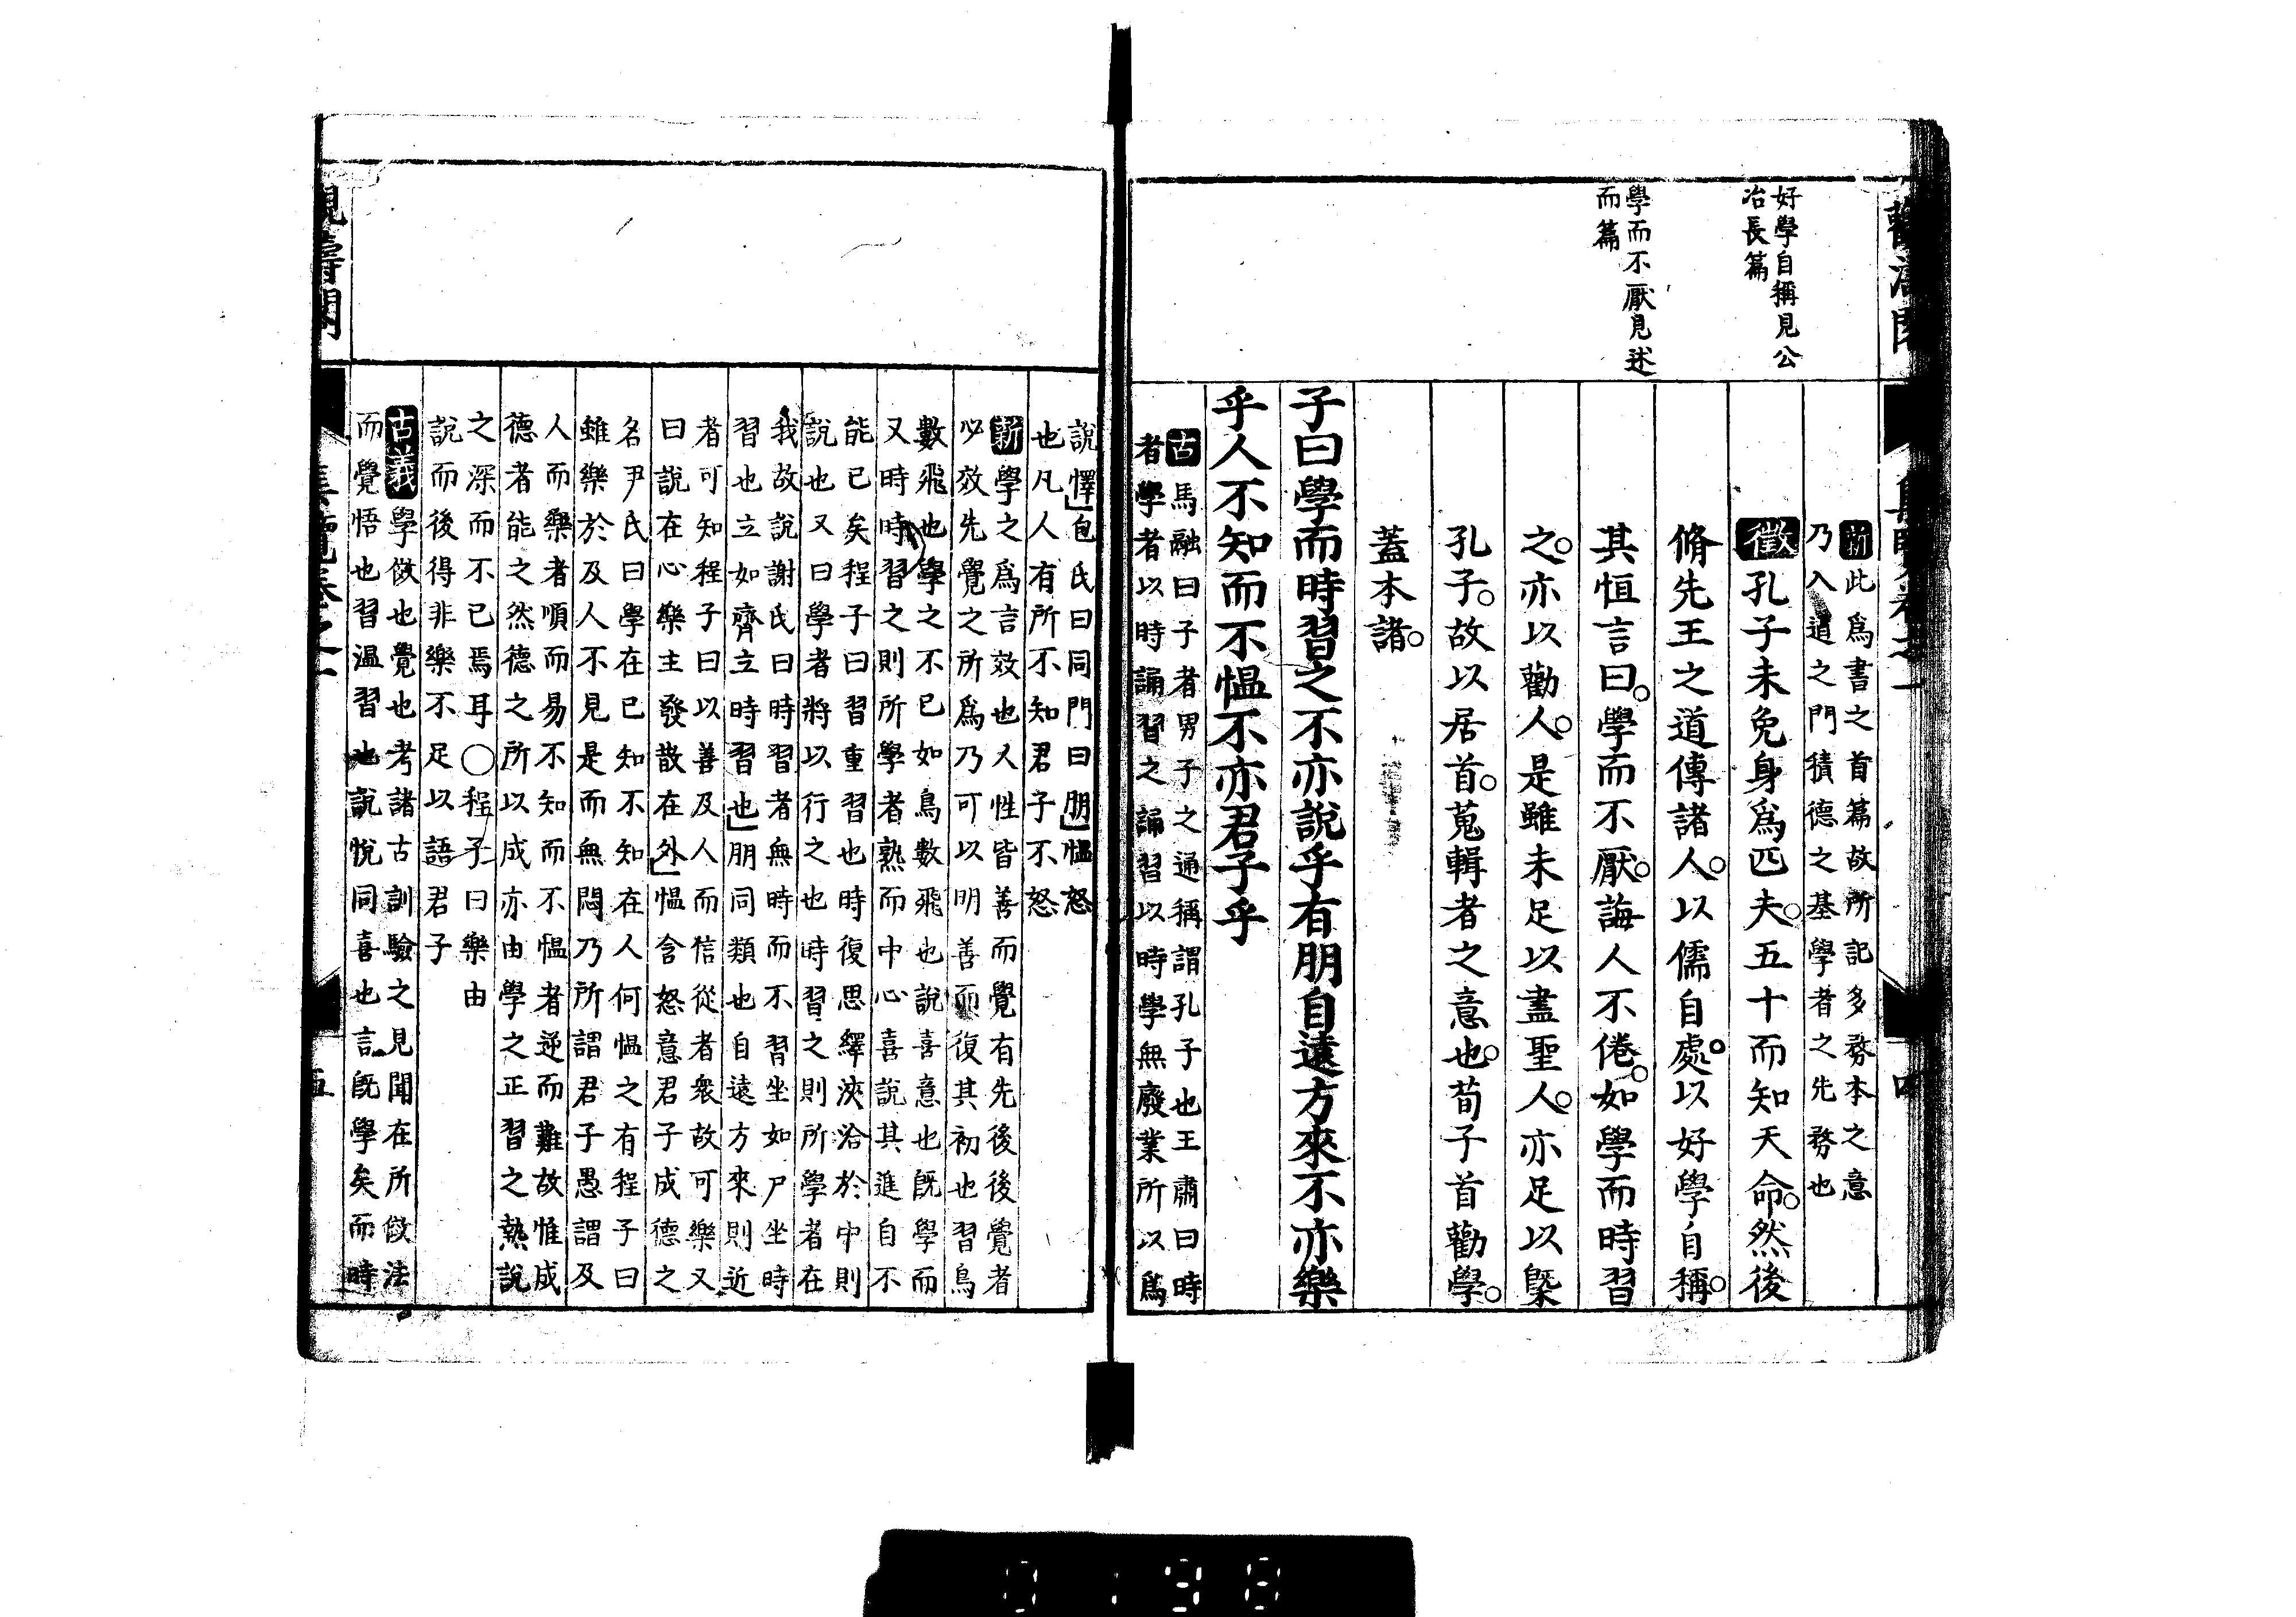 好學自稱見公
冶長篇
學而不厭見述
而篇
新此爲書之首篇故所記多務本之意
乃入道之門積德之基學者之先務也
徵孔子未免身爲匹夫。五十而知天命。然後
脩先王之道傳諸人。以儒自處。以好學自稱。
其恒言曰。學而不厭。誨人不倦。如學而時習
之。亦以勸人。是雖未足以盡聖人。亦足以槩
孔子。故以居首。蒐輯者之意也。荀子首勸學。
蓋本諸。
子曰學而時習之不亦說乎有朋自遠方來不亦樂
乎人不知而不慍不亦君子乎
古馬融曰子者男子之通稱謂孔子也王肅曰時
者學者以時誦習之誦習以時學無廢業所以爲
說懌」包氏曰同門曰朋」慍怒
也凡人有所不知君子不怒
新學之爲言效也人性皆善而覺有先後後覺者
必效先覺之所爲乃可以明善而復其初也習鳥
數飛也學之不已如鳥數飛也說喜意也旣學而
又時時習之則所學者熟而中心喜說其進自不
能已矣程子曰習重習也時復思繹浹洽於中則
說也又曰學者將以行之也時習之則所學者在
我故說謝氏曰時習者無時而不習坐如尸坐時
習也立如齊立時習也」朋同類也自遠方來則近
者可知程子曰以善及人而信從者衆故可樂又
曰說在心樂主發散在外」慍含怒意君子成德之
名尹氏曰學在已知不知在人何慍之有程子曰
雖樂於及人不見是而無悶乃所謂君子愚謂及
人而樂者順而易不知而不慍者逆而難故惟成
德者能之然德之所以成亦由學之正習之熟說
之深而不已焉耳○程子曰樂由
說而後得非樂不足以語君子
古義學傚也覺也考諸古訓驗之見聞在所傚法
而覺悟也習温習也說悅同喜也言旣學矣而時
五